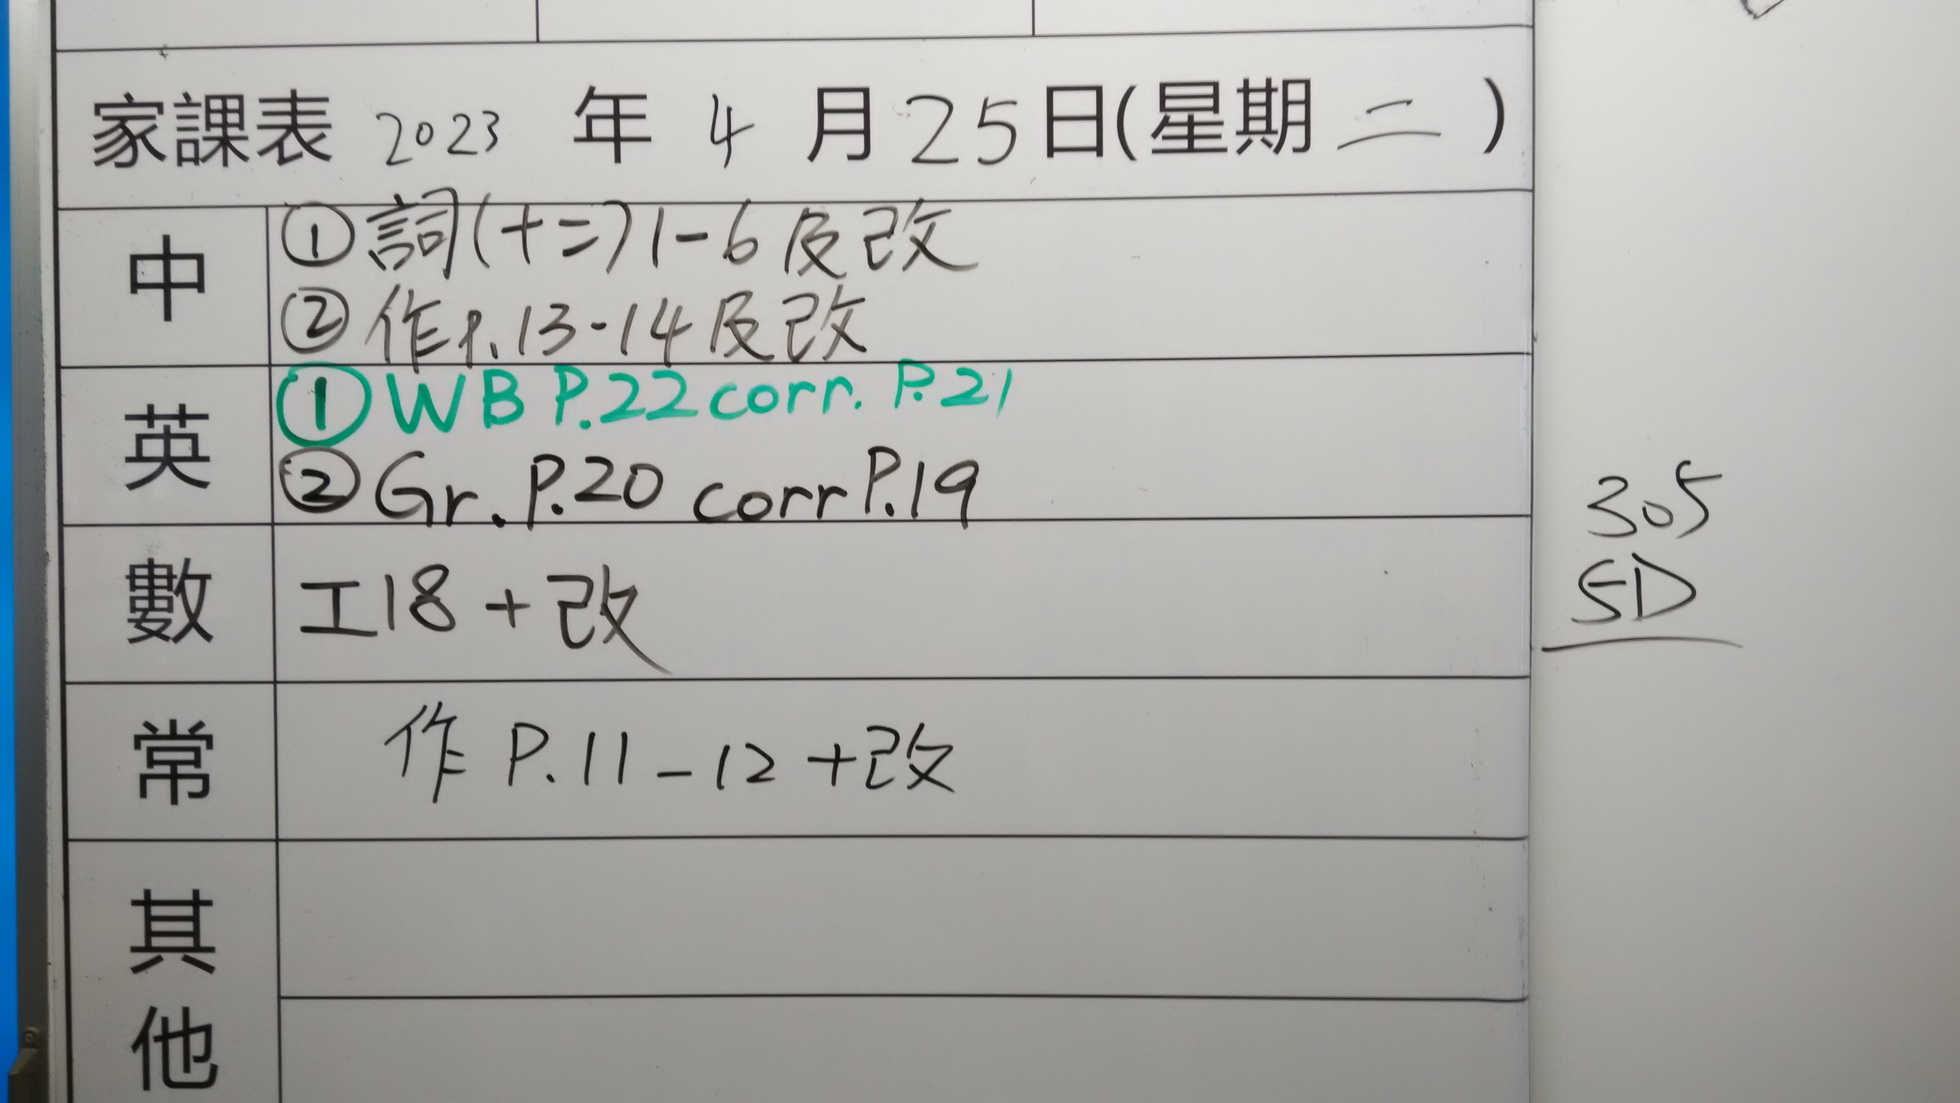 家課表 2023 年 4 月 25 日(星期 二 )
中
① 詞(十二) 1-6 及改
② 作 P.13-14 及改
英
① WB P.22 corr. P.21
② Gr. P.20 corr P.19
數
工18 + 改
常
作 P.11-12 +改
其他
305
5D